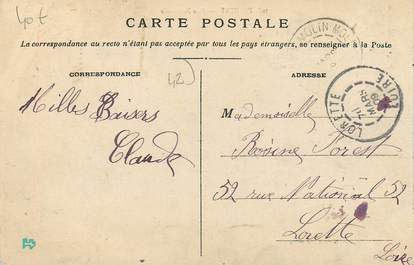 40t
CARTE POSTALE
La correspondance au recto n'étant pas acceptée par tous les pays étrangers, se renseigner à la Poste
CORRESPONDANCE
42
ADRESSE
Milles Baisers
Claude
Mademoiselle
Rosine Forest
52 rue National 52
Lorette
Loire
MOULIN
LORETTE
LOIRE
MARS
09